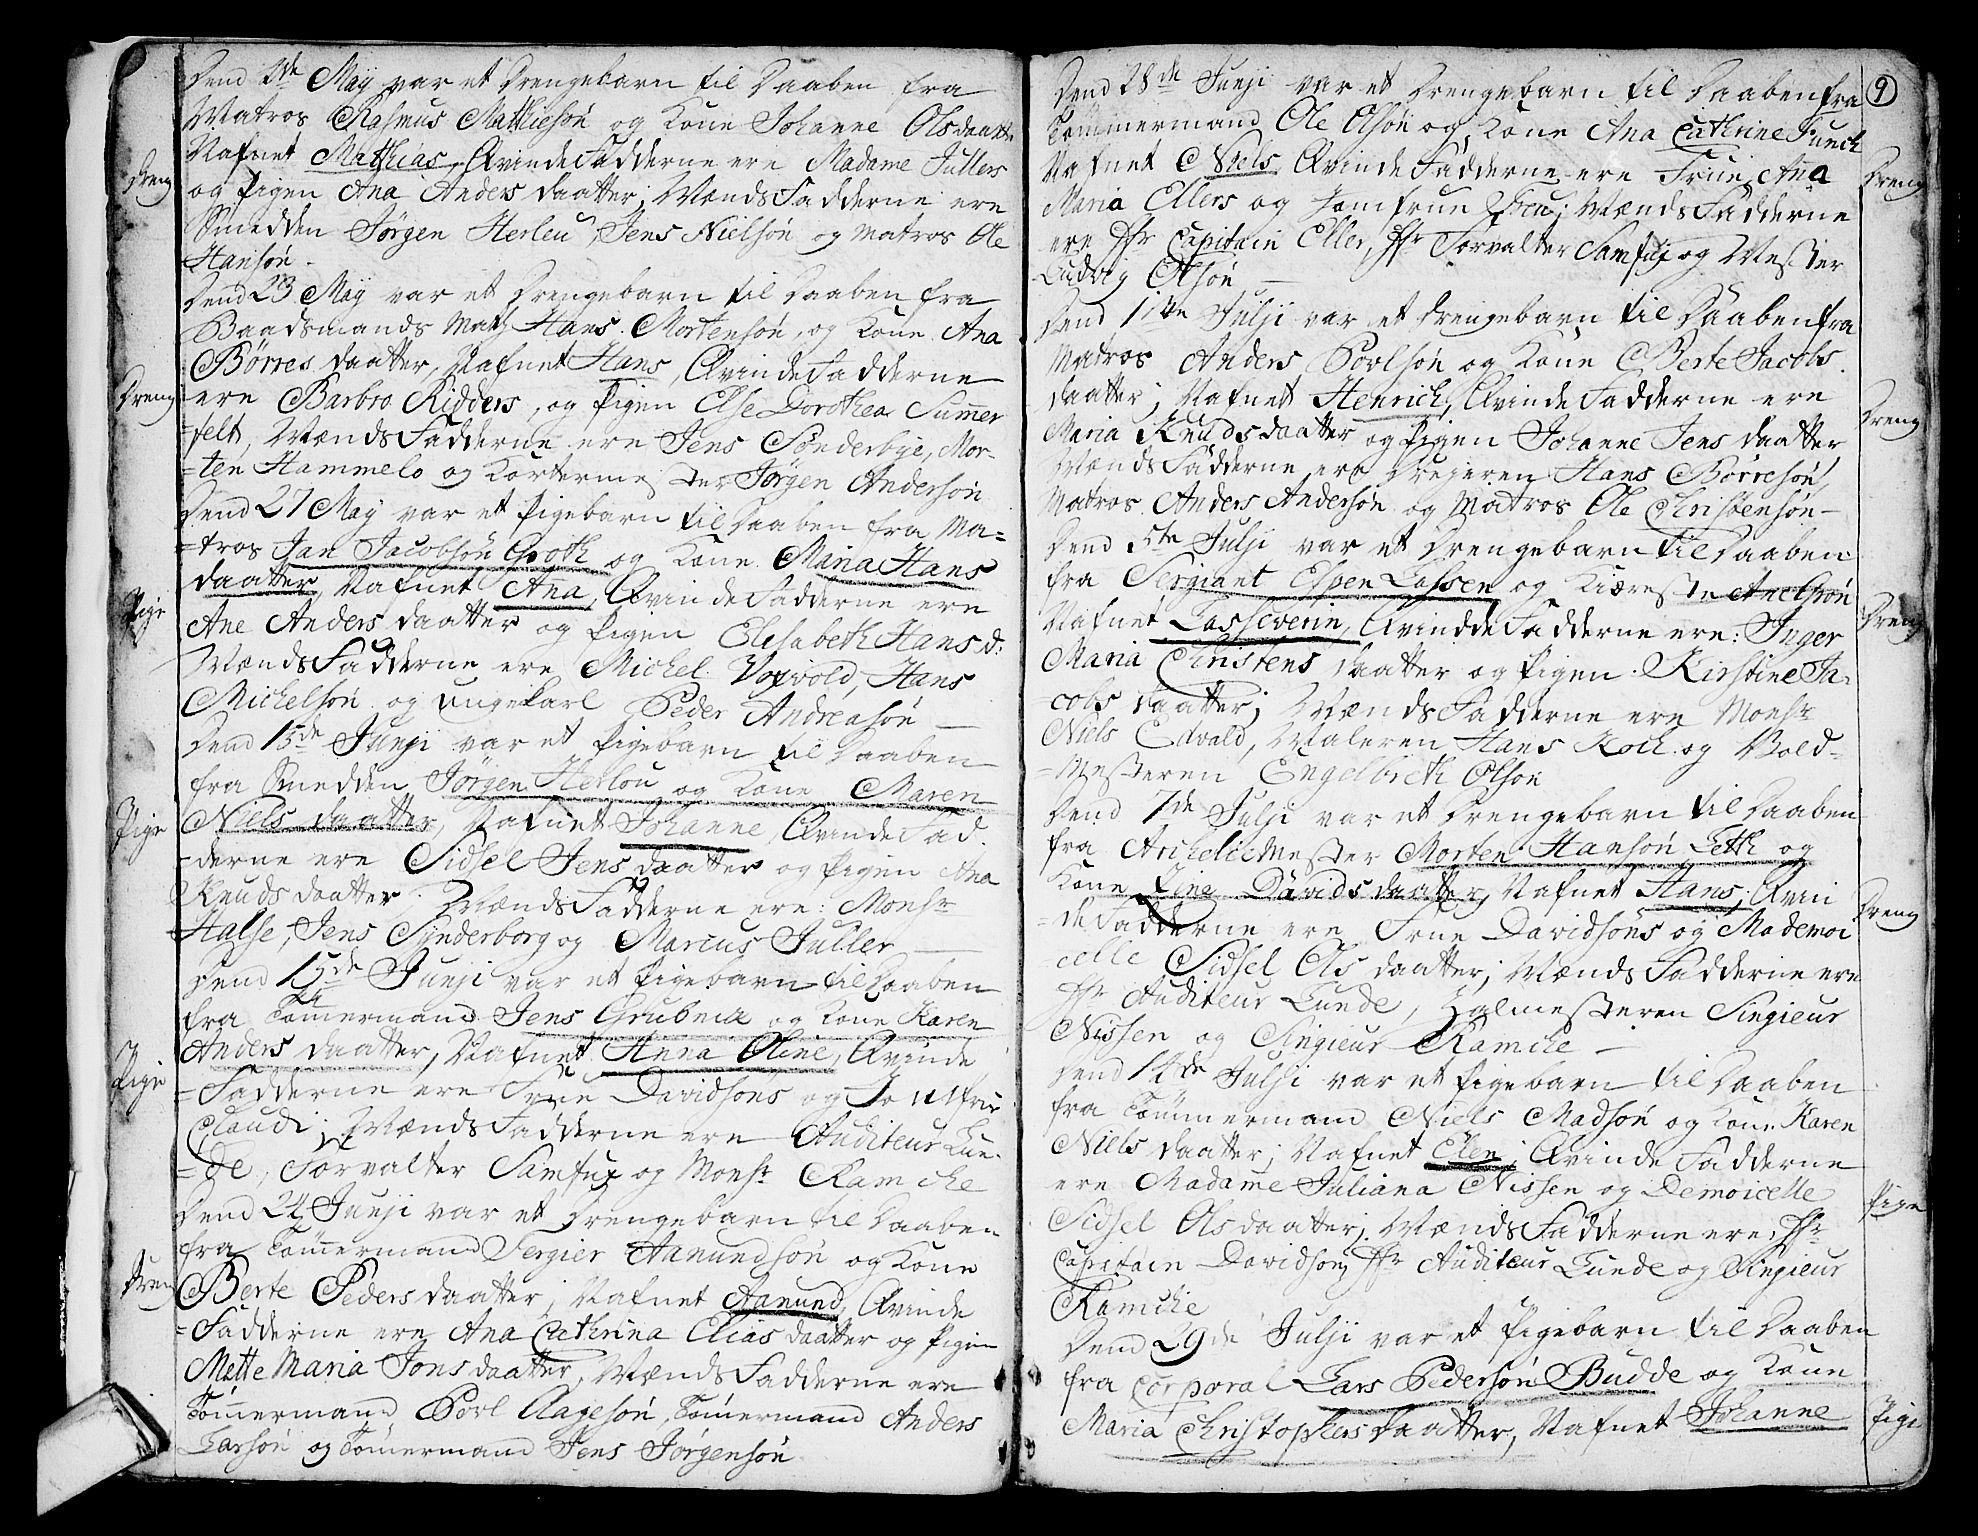 Dend 2de Maÿ var et Drengebarn til Daaben fra
Matros Rasmus Mathiesøn og Kone Johanne Olsdaatter
Nafnet Mathias, Qvinde Fadderne ere Madame Jullers
Dreng
og Pigen Ana Anders daatter; Mænds Fadderne ere
Smedden Jørgen Herleu, Jens Nielsøn og Matros Ole
Hansøn.
Dend 23 Maÿ var et Drengebarn til Daaben fra
Baadsmands Math Hans Mortensøn, og Kone Ana
Børres daatter, Nafnet Hans, Qvinde Fadderne
Dreng
ere Barbro Ridders, og Pigen Else Dorothea Sum̄er
felt, Mænds Fadderne ere Jens Sønderbye, Mor-
-ten Hammelo og Kortermester Jørgen Andersøn
Dend 27 Maÿ var et Pigebarn til Daaben fra Ma=
-tros Jan Jacobsøn Groth og Kone Maria Hans
daatter, Nafnet Ana, Qvinde Fadderne ere
Pige
Ane Anders daatter og Pigen Elisabeth Hans d:
Mænds Fadderne ere Michel Voxvold, Hans
Michelsøn og ungekarl Peder Andreasøn
Dend 15de Junji var et Pigebarn til Daaben
fra Smedden Jørgen Herlou og Kone Maren
Pige
Niels daatter, Nafnet Johanne, Qvinde Fad-
-derne ere Sidsel Jens daatter og Pigen Ana
Knuds daatter; Mænds Fadderne ere: Monsr
Halse, Jens Synderborg og Marcus Juller
Dend 15de Junji var et Pigebarn til Daaben
fra Tømmermand Jens Grubnia og Kone Karen
Anders daatter, Nafnet Anna Oline, Qvinde
Pige
-Fadderne ere Frue Davidsons og Jomfrue
Claudi; Mænds Fadderne ere Auditeur Lun-
-de, Forvalter Samfux og Monsr Ramche
Dend 24 Junji var et Drengebarn til Daaben
fra Tømmermand Sergier Aamundsøn og Kone
Dreng
Berte Peders daatter; Nafnet Aamund, Qvinde
-Fadderne ere Ana Cathrina Elias daatter og Pigen
Mette Maria Jons daatter, Mænds Fadderne ere
Tømmermand Povl Aagesøn, Tømmermand Anders
Larsøn og Tømmermand Jens Jørgensøn
9
Dend 28de Junji var et Drengebarn til Daaben fra
Tømmermand Ole Olsøn og Kone Ana Cathrine Funch
Nafnet Niels, Qvinde Fadderne ere Frue Ana
Dreng
Maria Ellers og Jomfrue; Mænds Fadderne
ere Hr Capitain Eller, Hr Forvalter Samfux og Mester
Ludvig Olsøn
Dend 1ste Julji var et Drengebarn til Daaben fra
Matros Anders Povlsøn og Kone Berte Jacobs
daatter; Nafnet Henrich, Qvinde Fadderne ere
Dreng
Maria Knuds daatter og Pigen Johanne Jens daatter
Mænds Fadderne ere Drejeren Hans Børresøn,
Matros Anders Andersøn og Matros Ole Christensøn
Dend 5te Julji var et Drengebarn til Daaben
fra Sergiant Espen Lassen og Kiæreste Ane Grøn
Nafnet Lasseverin, Qvindde Fadderne ere: Inger
Dreng
Maria Christens daatter og Pigen Kirstine Ja-
cobs daatter; Mænds Fadderne ere Monsr
Niels Edvald, Maleren Hans Koch og Bold-
-Mesteren Engelbreth Olson
Dend 7de Julji var et Drengebarn til Daaben
fra Archeliemester Morten Hansøn Leth og
Kone Zine Davids daatter, Nafnet Hans; Qvin
Dreng
-de Fadderne ere Frue Davidsons og Mademoi
celle Sidsel Ols daatter; Mænds Fadderne ere
Hr Auditeur Lunde, Holmesteren Singieur
Nissen og Singieur Ramche
Dend 12de Julji var et Pigebarn til Daaben
fra Tømmermand Niels Madsøn og Kone Karen
Niels daatter; Nafnet Elen; Qvinde Fadderne
ere Madame Juliana Nissen og Demoicelle
Pige
Sidsel Ols daatter; Mænds Fadderne ere: Hr
Capitain Davidson, Hr Auditeur Lunde og Singieur
Ramche
Dend 29de Julji var et Pigebarn til Daaben
fra Corporal Lars Pedersøn Budde og Kone
Maria Christophers daatter, Nafnet Johanne
Pige